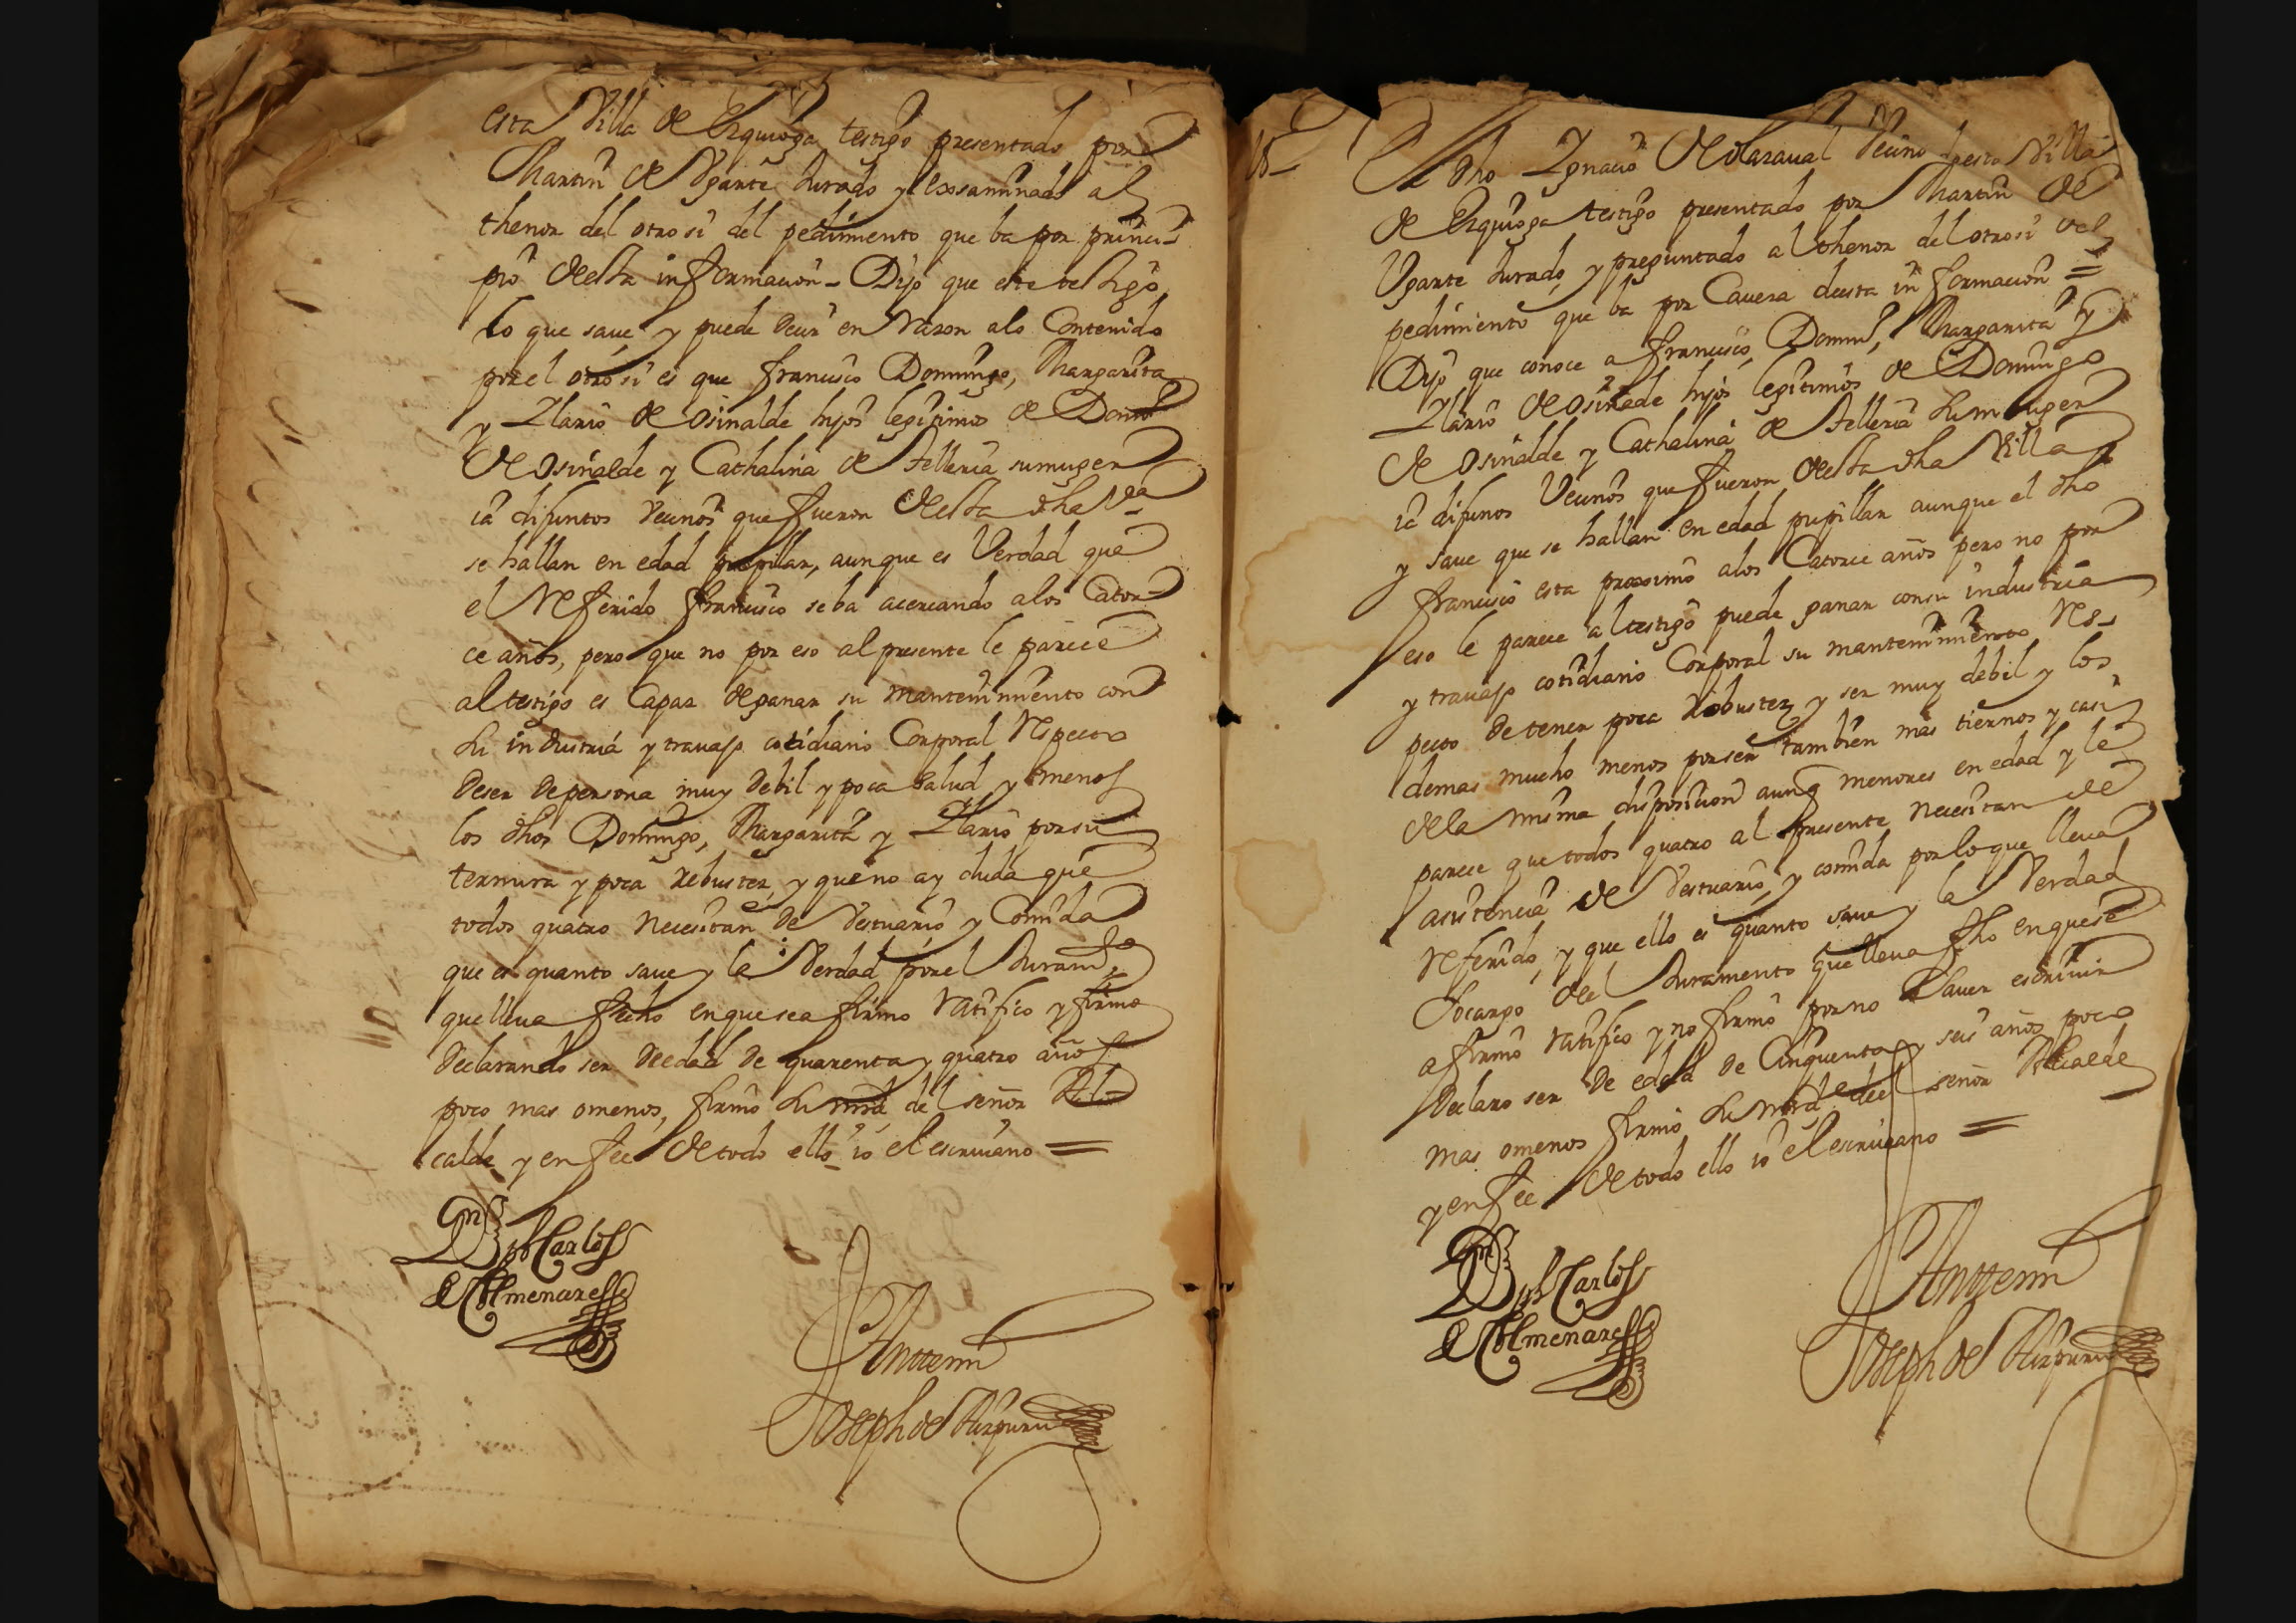 esta Villa de Ezquioga testigo presentado por
Martin de Vgarte Jurado y exsaminado al
thenor del otro si del pedimiento que ba por princi-
pio desta informacion - Dijo que este testigo
lo que saue, y puede decir en razon alo Contenido
por el otro si es que francisco Domingo, Margarita
y Ylario de osinalde hijos legitimos de Domo
de osinalde y Cathalina de Telleria su muger
ia difuntos Vecinos que fueron desta dha Va
se hallan en edad pupillar, aunque es Verdad que
el Referido francisco se ba acercando alos Cator-
ce años, pero que no por eso al presente le parece
al testigo es Capaz de ganar su mantenimiento con
su industria y trauajo cotidiano Corporal Respecto
de ser de persona muy debil y poca salud y menos
los dhos Domingo, Margarita y Ylario por su
ternura y poca Rebustez, y que no ay duda que
todos quatro Necesitan de Vestuario y Comida
que es quanto saue y la Verdad por el Juramto
que lleua fecho en que se a firmo Ratifico y firmo
declarando ser de edad de quarenta y quatro años
poco mas o menos, firmo su mrd del señor Al-
calde y en fee de todo ello io el escriuano =
Dn Jph Carlos
de Colmenares
Antte mi
Joseph de Aizpuru
El dho Ygnacio de olazaual Vecino desta Villa
de Ezquioga testigo presentado por Martin de
Vgarte Jurado, y preguntado al thenor del otro si del
pedimiento que ba por Cauera desta informacion =
Dijo que conoce a francisco, Domo, Margarita y
Ylario de osinade hijos legitimos de Domingo
de Osinalde y Cathalina de Telleria su muger
ia difunos Vecinos que fueron desta dha Villa
y saue que se hallan en edad pupillar aunque el dho
francisco esta proximo alos Catorce años pero no por
eso le parece al testigo puede ganar con su industria
y trauajo cotidiano Corporal su mantenimiento Res-
pecto de tener poca Robustez y ser muy debil y los
demas mucho menos por ser tambien mas tiernos y casi
de la misma disposicion aunq menores en edad y le
parece que todos quatro al presente necesitan de
asistencia de Vestuario, y comida por lo que lleua
Referido, y que ello es quanto saue y la Verdad
So cargo del Juramento que lleua fho en que se
a firmo ratifico y no firmo por no sauer escriuir
declaro ser de edad de Cinquenta y seis años poco
mas o menos firmo su mrd del señor Alcalde
y en fee de todo ello io el escriuano =
Dn Jph Carlos
de Colmenares
Antte mi
Joseph de Aizpuru